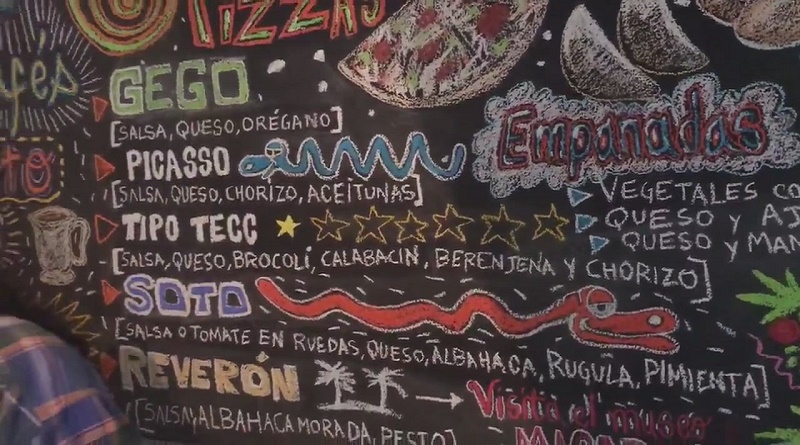 PIZZAS
GEGO
[SALSA, QUESO, ORÉGANO]
PICASSO
[SALSA, QUESO, CHORIZO, ACEITUNAS]
TIPO TECC
[SALSA, QUESO, BROCOLÍ, CALABACIN, BERENJENA Y CHORIZO]
SOTO
[SALSA O TOMATE EN RUEDAS, QUESO, ALBAHACA, RUGULA, PIMIENTA]
REVERÓN
[SALSA, ALBAHACA MORADA, PESTO]
Visita el museo
Empanadas
VEGETALES
QUESO y
QUESO y